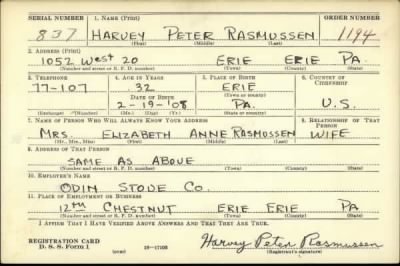 SERIAL NUMBER 1. NAME (Print) ORDER NUMBER
837 HARVEY PETER RASMUSSEN 1194
(First) (Middle) (Last)
2. ADDRESS (Print)
1052 WEST 20 ERIE ERIE PA.
(Number and street or R. F. D. number) (Town) (County) (State)
3. TELEPHONE 4. AGE IN YEARS 5. PLACE OF BIRTH 6. COUNTRY OF CITIZENSHIP
77-107 32 ERIE
DATE OF BIRTH (Town or county)
2-19-'08 PA. U.S.
(Exchange) (Number) (Mo.) (Day) (Yr.) (State or country)
7. NAME OF PERSON WHO WILL ALWAYS KNOW YOUR ADDRESS 8. RELATIONSHIP OF THAT PERSON
MRS. ELIZABETH ANNE RASMUSSEN WIFE
(Mr., Mrs., Miss) (First) (Middle) (Last)
9. ADDRESS OF THAT PERSON
SAME AS ABOVE
(Number and street or R. F. D. number) (Town) (County) (State)
10. EMPLOYER'S NAME
ODIN STOVE CO.
11. PLACE OF EMPLOYMENT OR BUSINESS
12TH CHESTNUT ERIE ERIE PA
(Number and street or R. F. D. number) (Town) (County) (State)
I AFFIRM THAT I HAVE VERIFIED ABOVE ANSWERS AND THAT THEY ARE TRUE.
REGISTRATION CARD
D. S. S. Form 1 (over) 16—17105 Harvey Peter Rasmussen
(Registrant's signature)